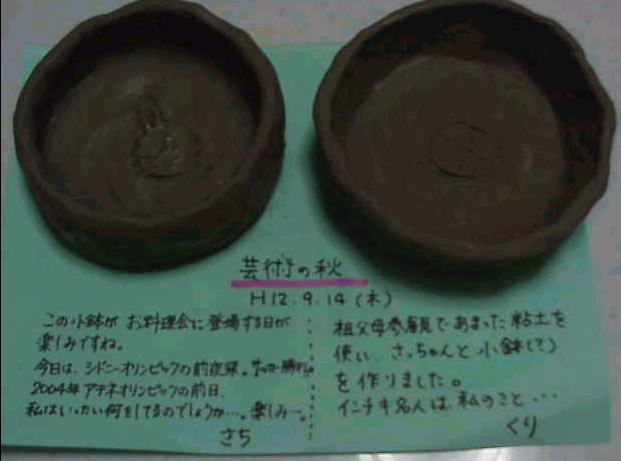 芸術の秋
H12.9.14(木)
この小鉢が お料理会に登場する日が
楽しみですね。
今日は、シドニーオリンピックの前夜祭。サッカー勝利。
2004年アテネオリンピックの前日、
私はいったい何をしてるのでしょうか…。楽しみー。
さち
祖父母参観であまった粘土を
使い、さっちゃんと小鉢(?)
を作りました。
インチキ名人は、私のこと…
くり